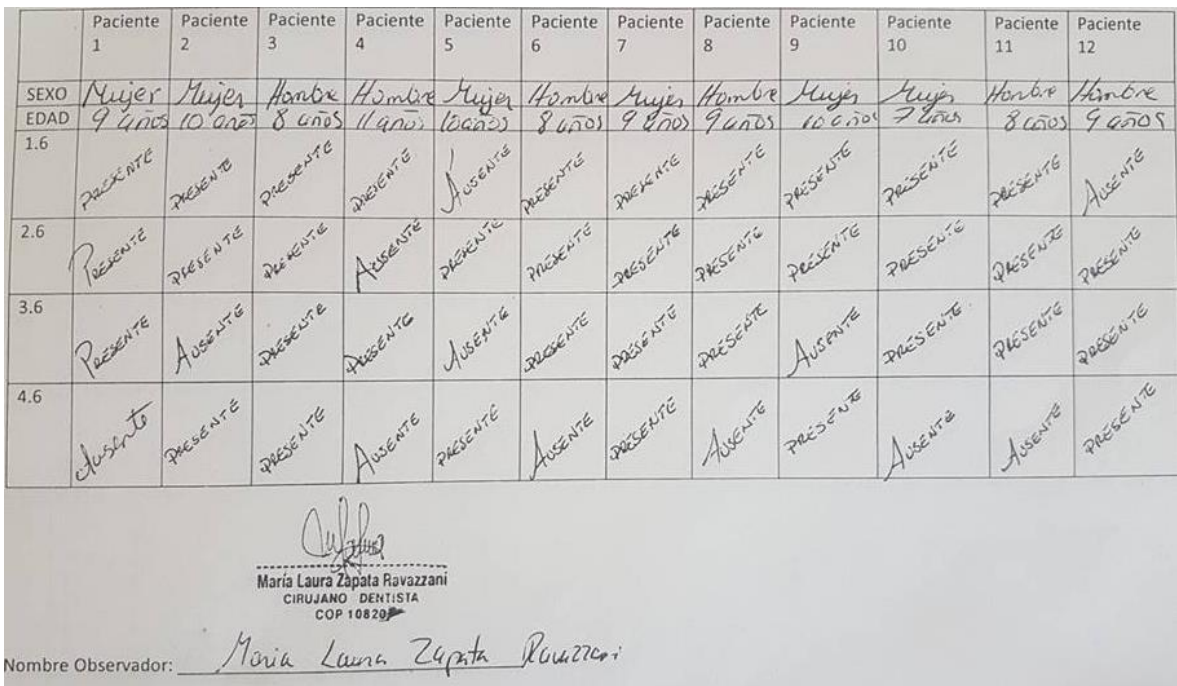 Paciente 1 Paciente 2 Paciente 3 Paciente 4 Paciente 5 Paciente 6 Paciente 7 Paciente 8 Paciente 9 Paciente 10 Paciente 11 Paciente 12
SEXO Mujer Mujer Hombre Hombre Mujer Hombre Mujer Hombre Mujer Mujer Hombre Hombre
EDAD 9 años 10 años 8 años 11 años 10 años 8 años 9 años 9 años 10 años 7 años 8 años 9 años
1.6 PRESENTE PRESENTE PRESENTE PRESENTE AUSENTE PRESENTE PRESENTE PRESENTE PRESENTE PRESENTE PRESENTE AUSENTE
2.6 PRESENTE PRESENTE PRESENTE AUSENTE PRESENTE PRESENTE PRESENTE PRESENTE PRESENTE PRESENTE PRESENTE PRESENTE
3.6 PRESENTE AUSENTE PRESENTE PRESENTE AUSENTE PRESENTE PRESENTE PRESENTE AUSENTE PRESENTE PRESENTE PRESENTE
4.6 Ausente PRESENTE PRESENTE AUSENTE PRESENTE AUSENTE PRESENTE AUSENTE PRESENTE AUSENTE AUSENTE PRESENTE
María Laura Zapata Ravazzani
CIRUJANO DENTISTA
COP 10820
Nombre Observador: Maria Laura Zapata Ravazzani